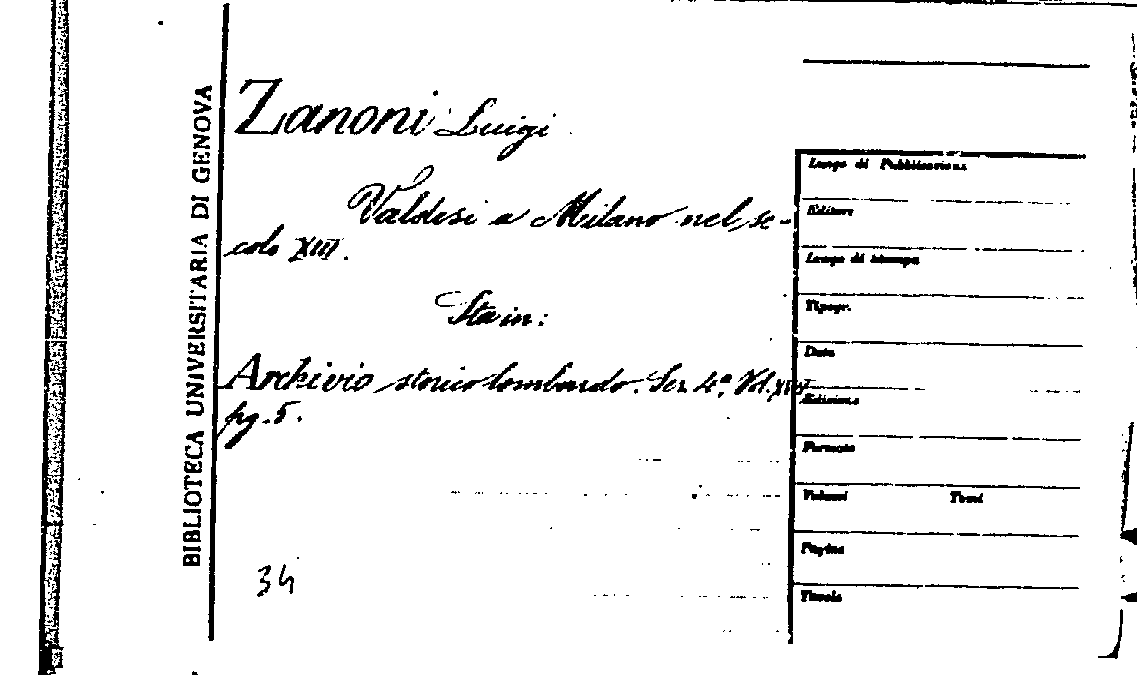 BIBLIOTECA UNIVERSITARIA DI GENOVA
Zanoni Luigi
Valdesi a Milano nel se-
colo XIII.
Sta in:
Archivio storico lombardo. Ser. 4ª. Vol.
pg. 5.
34
Luogo di Pubblicazione
Editore
Luogo di stampa
Tipogr.
Data
Edizione
Formato
Volumi Tomi
Pagine
Tavole